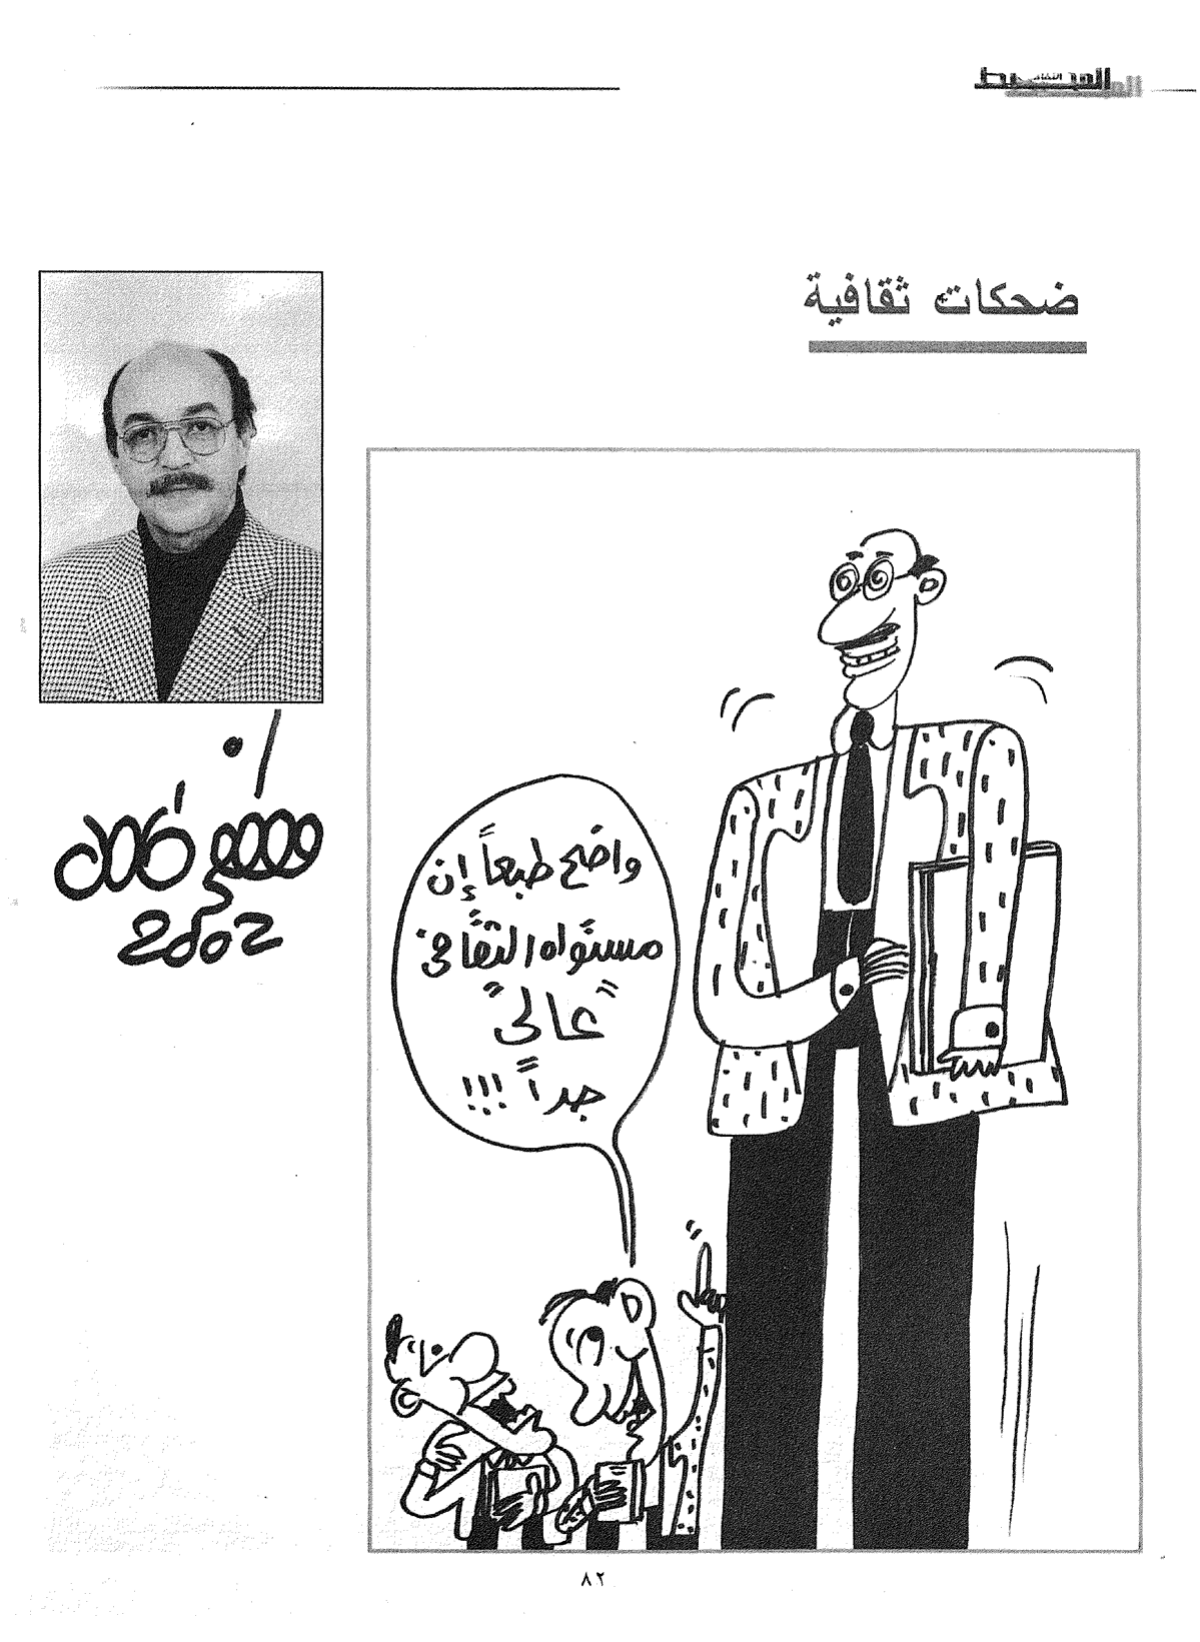 المحيط
الثقافي
ضحكات ثقافية
2002
واضح طبعاً إن
مستواه الثقافى
"عالى"
جداً !!!
٨٢